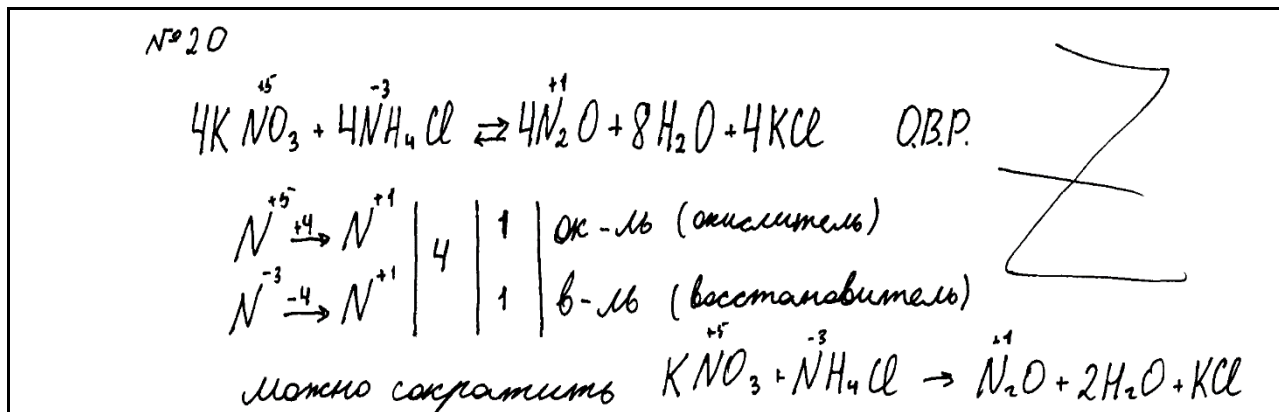 №20
4KN⁺⁵O₃ + 4N⁻³H₄Cl ⇄ 4N⁺¹₂O + 8H₂O + 4KCl О.В.Р.
N⁺⁵ +4→ N⁺¹ | 4 | 1 | ок-ль (окислитель)
N⁻³ -4→ N⁺¹ | | 1 | в-ль (восстановитель)
можно сократить KN⁺⁵O₃ + N⁻³H₄Cl → N⁺¹₂O + 2H₂O + KCl